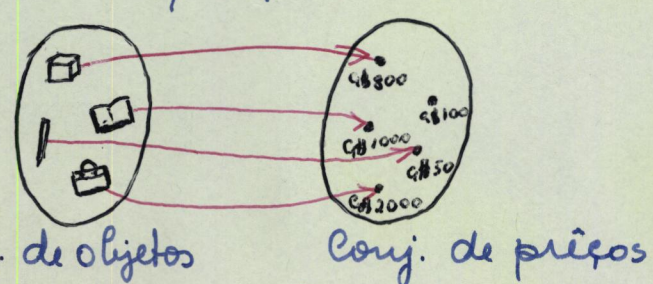 Cr$ 800
Cr$ 100
Cr$ 1000
Cr$ 50
Cr$ 2000
. de objetos Conj. de prêços